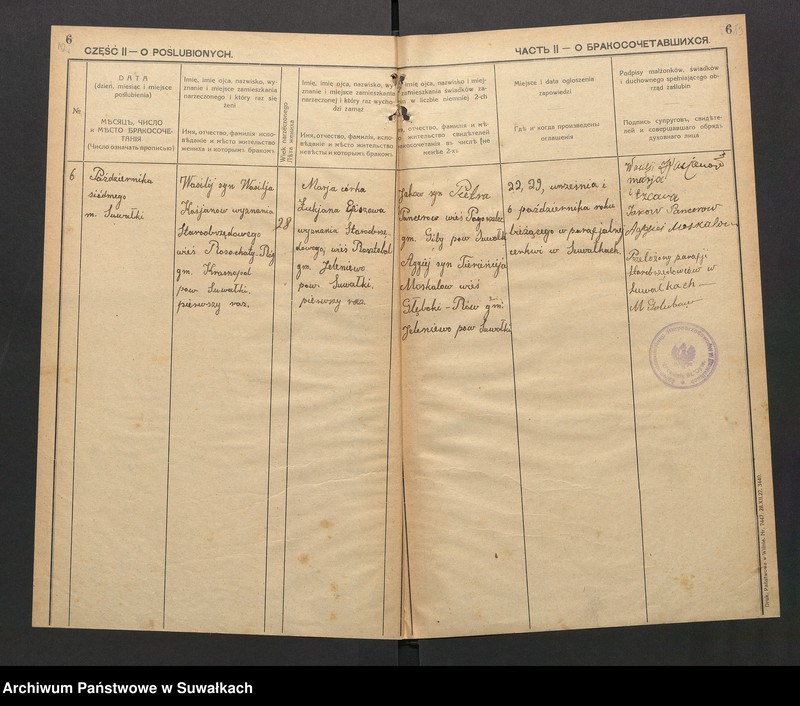 6
CZĘŚĆ II — O POŚLUBIONYCH.
D A T A
(dzień, miesiąc i miejsce
poślubienia)
МѢСЯЦЪ, ЧИСЛО
и МѢСТО БРАКОСОЧЕ-
ТАНІЯ
(Число означать прописью)
№
Imię, imię ojca, nazwisko, wy-
znanie i miejsce zamieszkania
narzeczonego i który raz się
żeni
Имя, отчество, фамилія испо-
вѣданіе и мѣсто жительство
жениха и которымъ бракомъ
Wiek narzeczonego
Лѣта жениха
Imię, imię ojca, nazwisko, wy-
znanie i miejsce zamieszkania
narzeczonej i który raz wycho-
dzi zamąż
Имя, отчество, фамилія, испо-
вѣданіе и мѣсто жительство
невѣсты и которымъ бракомъ
6
Października
siódmego
m. Suwałki
Wasilij syn Wasilja
wyznania
Starobrzędowego
wieś
gm. Krasnopol
pow. Suwałki,
pierwszy raz.
28
Marja córka
Łukjana
wyznania Starobrzę-
dowego, wieś
gm. Jeleniewo
pow. Suwałki.
pierwszy raz
6
ЧАСТЬ II — О БРАКОСОЧЕТАВШИХСЯ.
imię ojca, nazwisko i miej-
zamieszkania świadków za-
w liczbie niemniej 2-ch
отчество, фамилія и мѣ-
жительство свидѣтелей
въ числѣ [не
менѣе 2-хъ
Miejsce i data ogłoszenia
zapowiedzi
Гдѣ и когда произведены
оглашенія
Podpisy małżonków, świadków
i duchownego spełniającego ob-
rząd zaślubin
Подпись супруговъ, свидѣте-
лей и совершавшаго обрядъ
духовнаго лица
Jakow syn Piotra
Pancerow wieś Pogorzelec
gm. Giby pow Suwałki
i
syn
Moskalow wieś
Głęboki-Rów gm.
Jeleniewo pow Suwałki
22, 29, września i
6 października roku
bieżącego w parafjalnej
cerkwi w Suwałkach
Marja
Jakow Pancerow
Moskalow
Przełożony parafji
staroobrzędowców w
Suwałkach —
M Golubow
Druk. Państwowa w Wilnie. Nr. 7447. 28.XII.27.
Archiwum Państwowe w Suwałkach